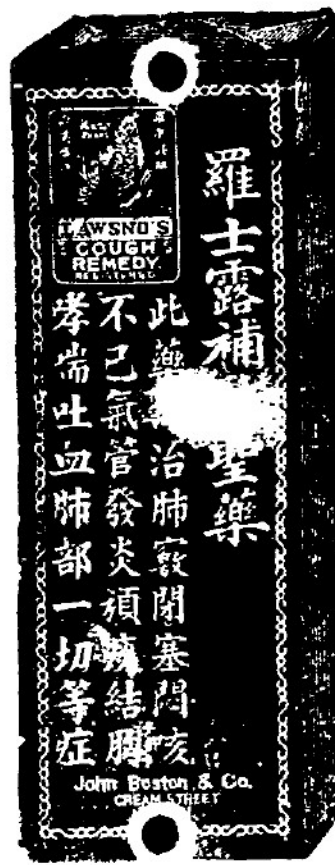 LAWSNO'S
COUGH
REMEDY
REGISTERED
羅士露補聖藥
此藥治肺竅閉塞悶咳
不已氣管發炎結
哮喘吐血肺部一切等症
John Boston & Co.
CREAM STREET